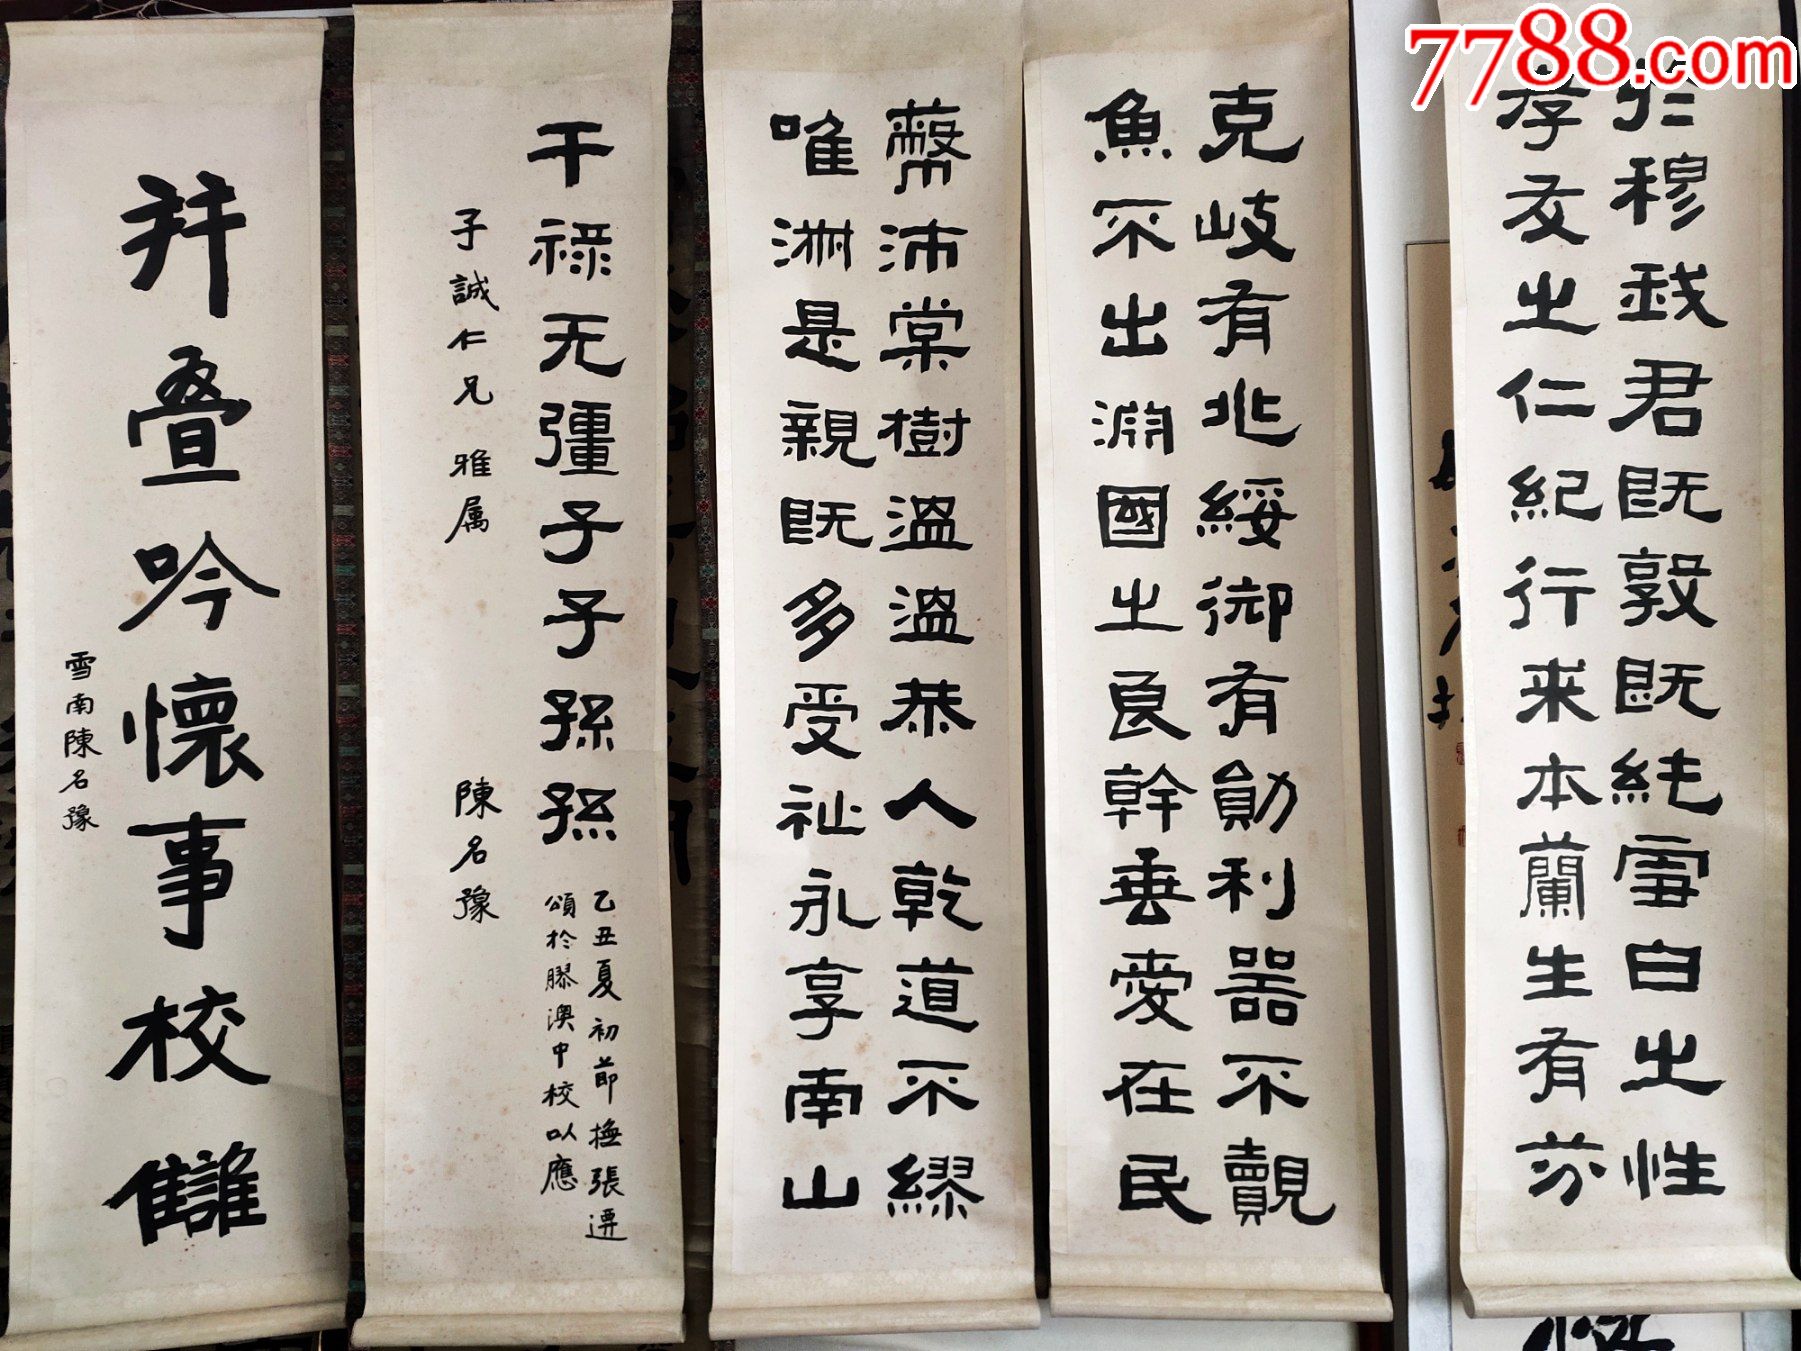 7788.com
於穆我君既敦既純雪白之性
孝友之仁紀行来本蘭生有芬
克岐有兆綏御有勛利器不覿
魚不出渊國之良幹垂愛在民
蔽沛棠樹温温恭人乾道不繆
唯淑是親既多受祉永享南山
干禄无彊子子孫孫
乙丑夏初節撫張遷
頌於膠澳中校以應
子誠仁兄雅属
陳名豫
拜叠吟懷事校讎
雪南陳名豫